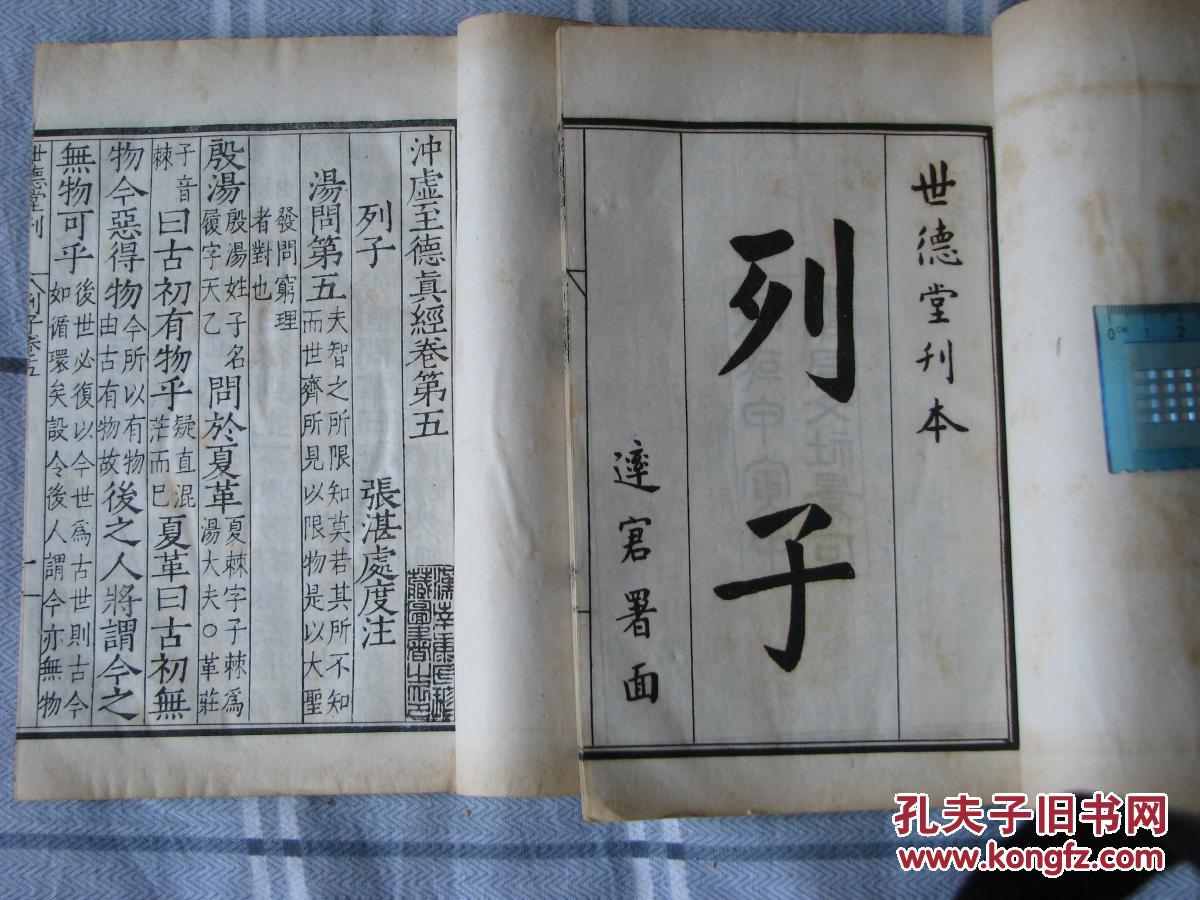 世德堂刊本
列子
署面
沖虛至德真經卷第五
列子 張湛處度注
湯問第五夫智之所限知莫若其所不知
而世齊所見以限物是以大聖
發問窮理
者對也
殷湯殷湯姓子名
履字天乙問於夏革夏棘字子棘為
湯大夫○革莊
子音
棘曰古初有物乎疑直混
茫而已夏革曰古初無
物今惡得物今所以有物
由古有物故後之人將謂今之
無物可乎後世必復以今世為古世則古今
如循環矣設令後人謂今亦無物
世德堂刊
列子卷五
一
0 CM 1 2
孔夫子旧书网
www.kongfz.com